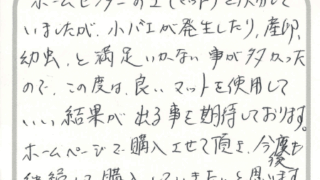 ホームセンターの土(マット)を使用して
いましたが、小バエが発生したり、産卵、
幼虫、と満足いかない事が多かった
ので、この度は、良いマットを使用して
いい結果が出る事を期待しております。
ホームページで購入させて頂き、今度も
後
継続して購入していきたいと思います